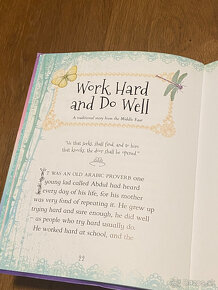 Work Hard
and Do Well
A traditional story from the Middle East
"He that seeks shall find, and to him
that knocks, the door shall be opened."
IT WAS AN OLD ARABIC PROVERB one
young lad called Abdul had heard
every day of his life, for his mother
was very fond of repeating it. He grew up
trying hard and sure enough, he did well
as people who try hard usually do.
He worked hard at school, and the